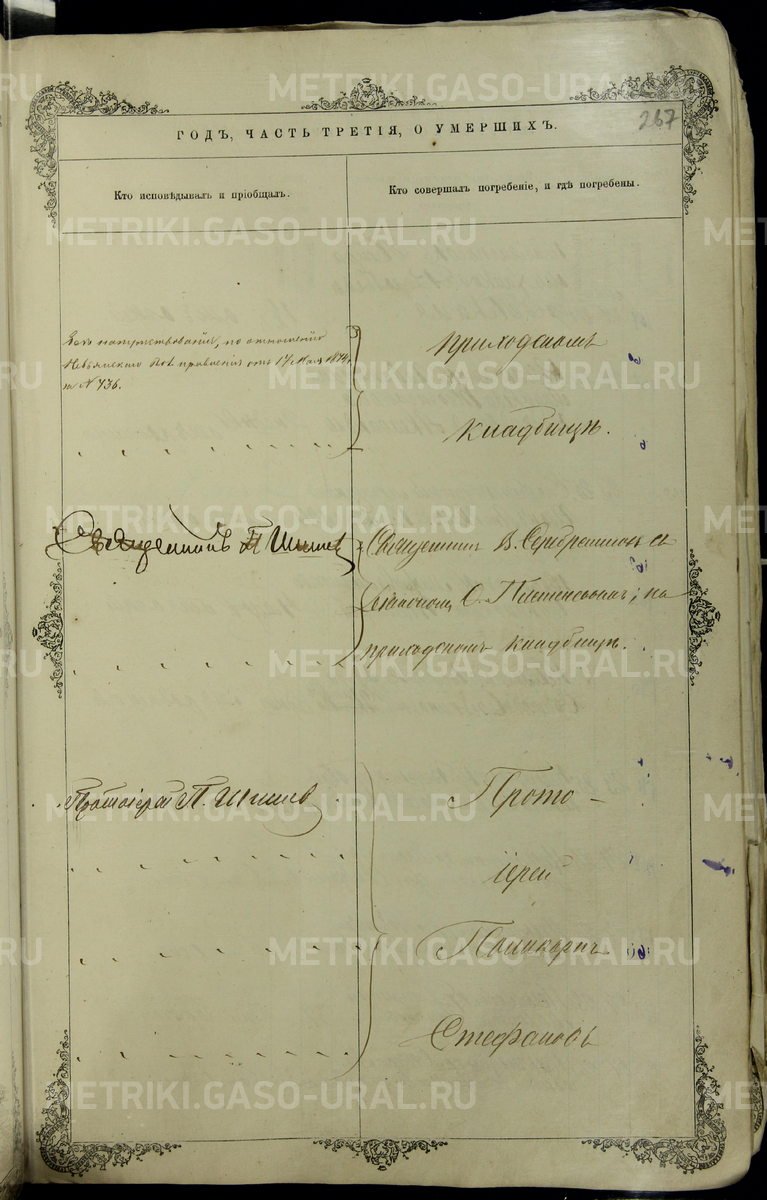 267
ГОДЪ, ЧАСТЬ ТРЕТІЯ, О УМЕРШИХЪ.
Кто исповѣдывалъ и пріобщалъ.
Кто совершалъ погребеніе, и гдѣ погребены.
Безъ напутствованія, по отношенію
Невьянскаго правленія отъ 17 1874
за № 736.
приходскомъ
кладбищѣ.
Священникъ П.
Священник В. с
діакономъ С. ; на
приходскомъ кладбищѣ.
Протоіерей П.
Прото-
іерей
Поликарпъ
Стефановъ
METRIKI.GASO-URAL.RU